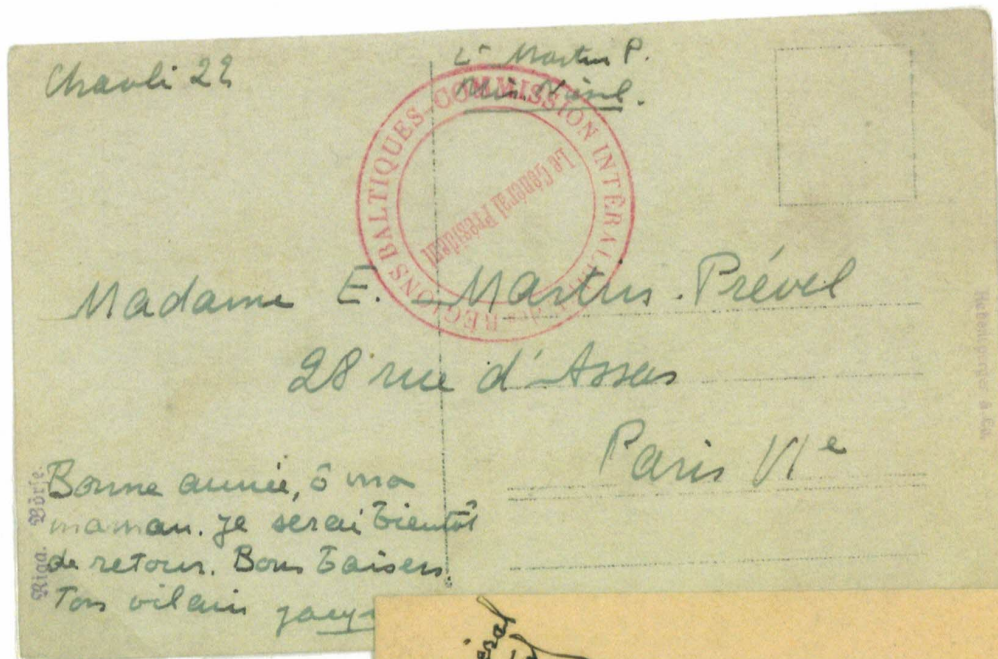 Chavli 22
Lt Martin P.
COMMISSION INTERALLIÉE des RÉGIONS BALTIQUES
Le Général Président
Madame E. Martin-Prével
28 rue d'Assas
Paris VIe
Bonne année, ô ma
maman. Je serai bientôt
de retour. Bons baisers.
Ton vilain
Riga. Börse.